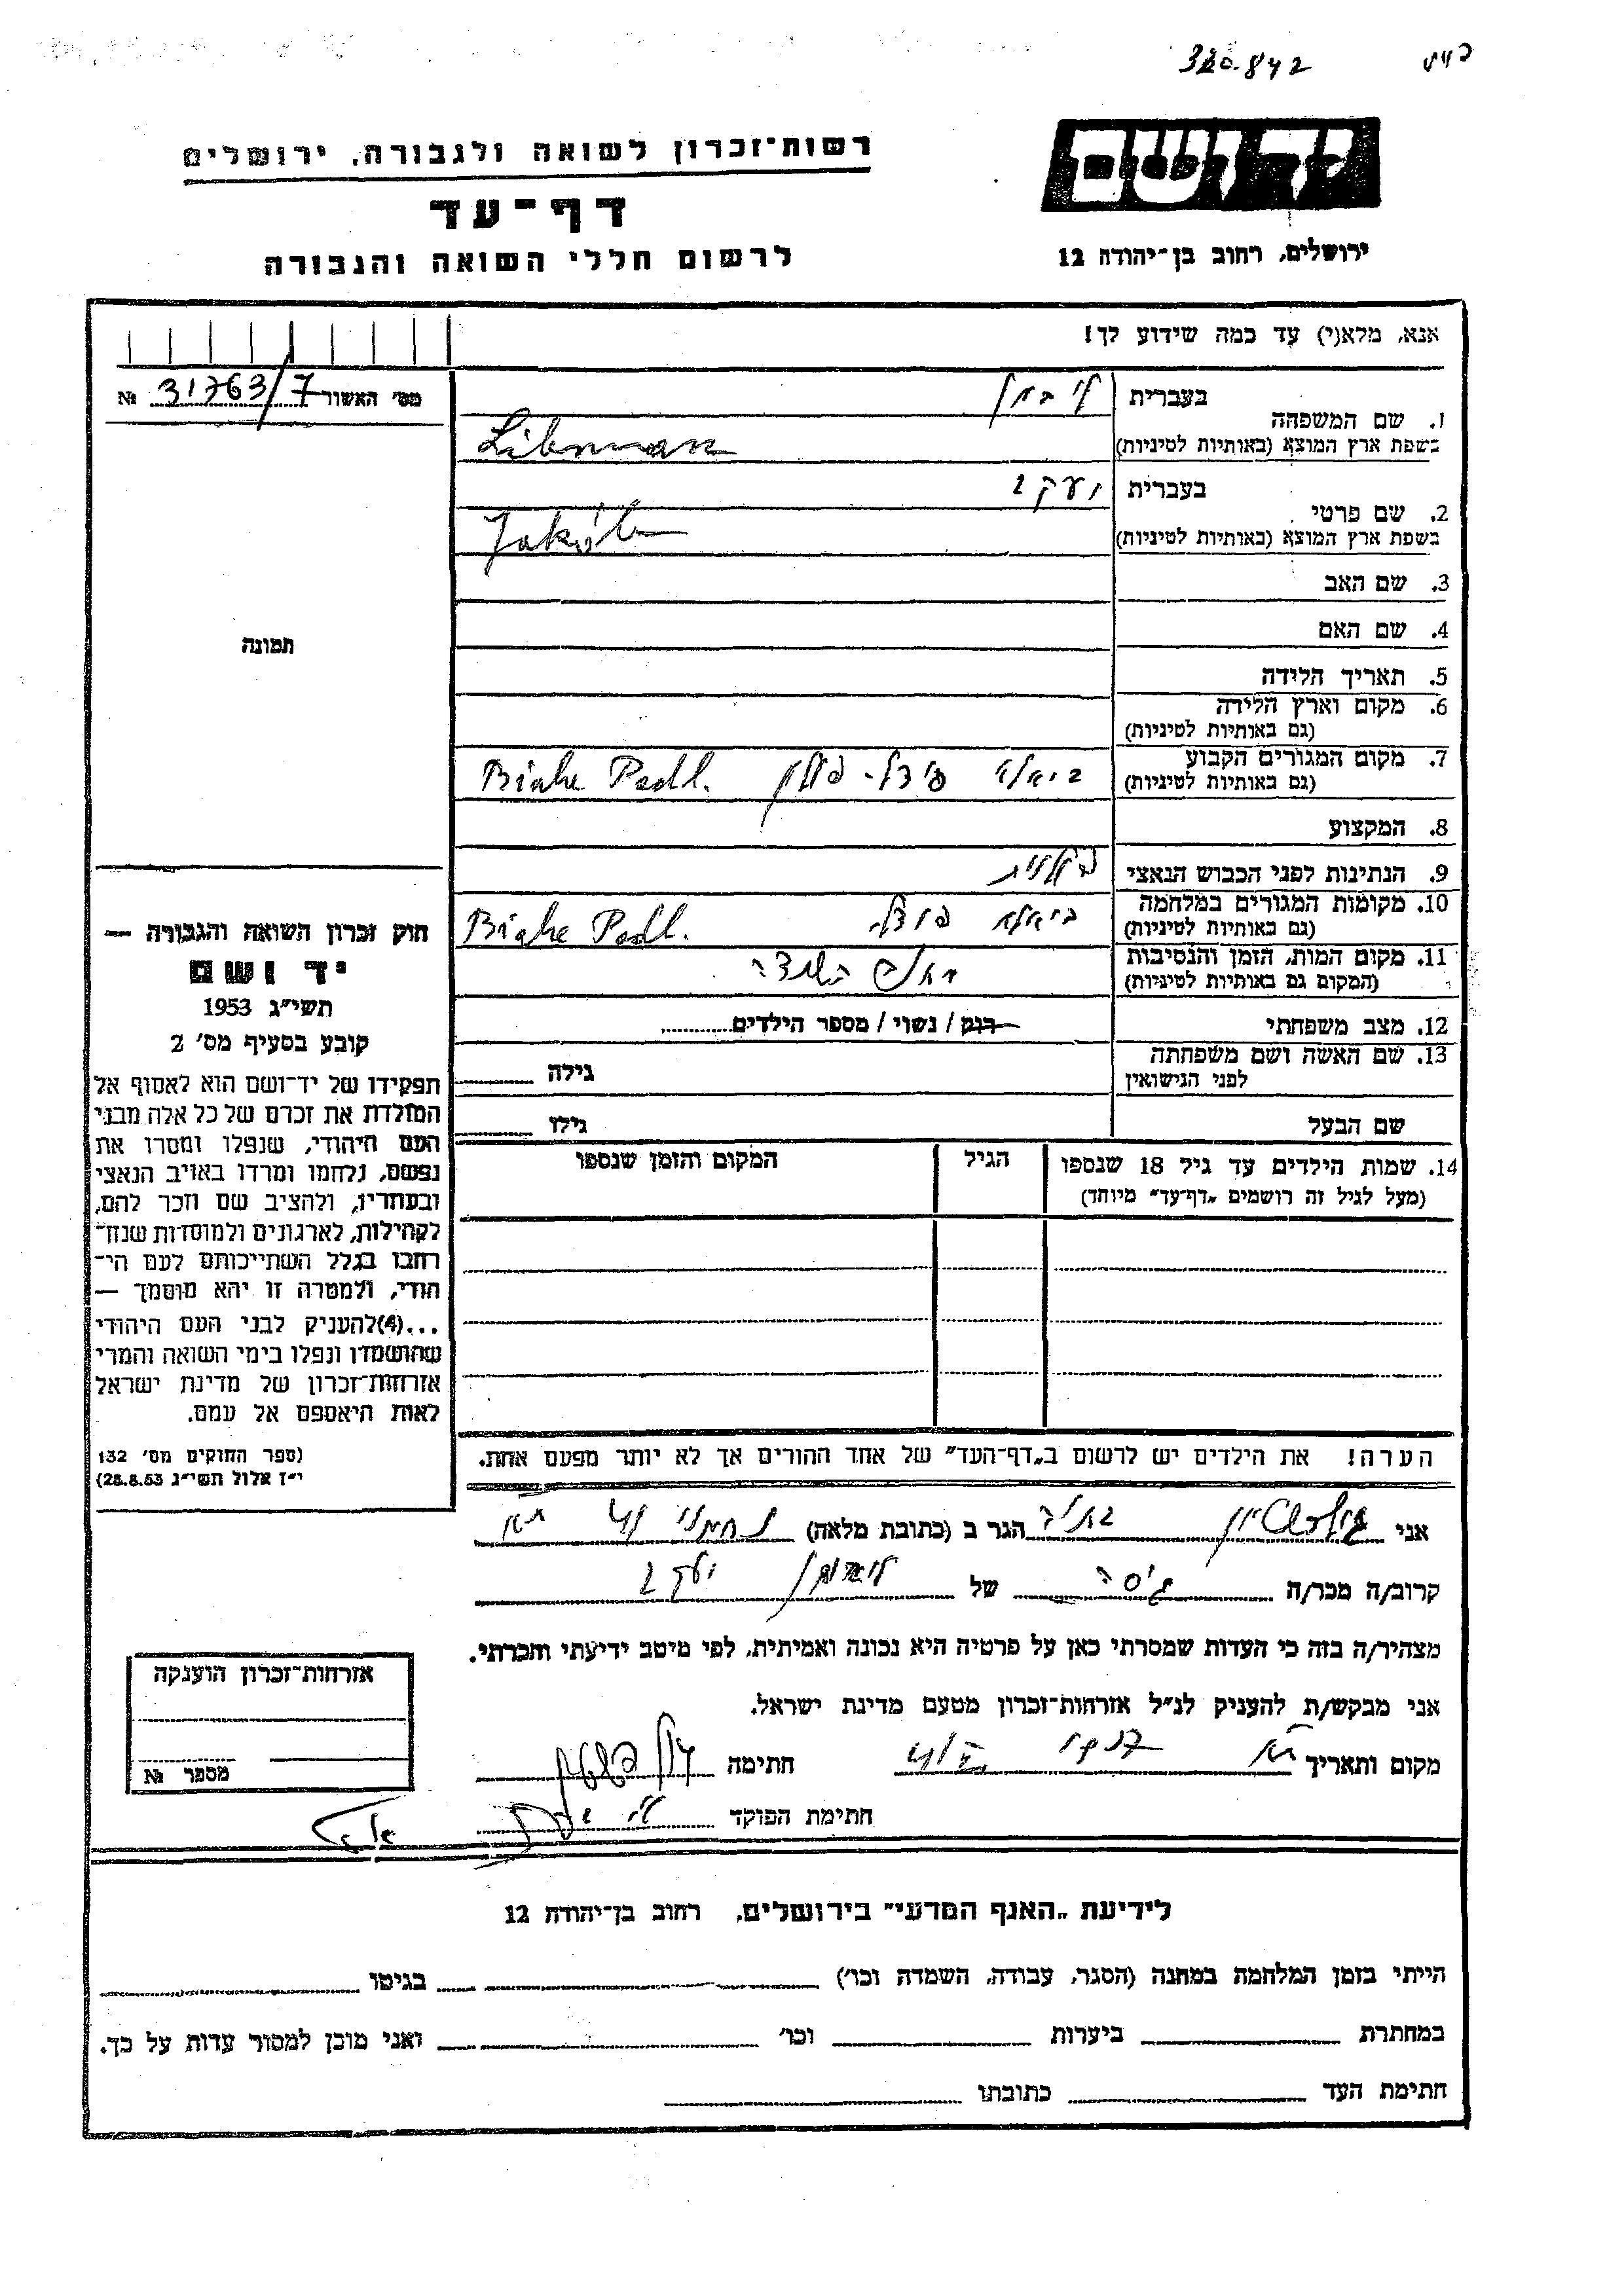 320.842
רשות־זכרון לשואה ולגבורה, ירושלים
דף־עד
לרשום חללי השואה והגבורה
יד ושם
ירושלים, רחוב בן־יהודה 12
אנא, מלא(י) עד כמה שידוע לך!
מס׳ האשור 31763/7 №
1. שם המשפחה
בעברית ליבמן
בשפת ארץ המוצא (באותיות לטיניות) Libman
2. שם פרטי
בעברית יעקב
בשפת ארץ המוצא (באותיות לטיניות) Jakób
3. שם האב
4. שם האם
5. תאריך הלידה
6. מקום וארץ הלידה
(גם באותיות לטיניות)
7. מקום המגורים הקבוע
(גם באותיות לטיניות) ביאלא פודל. פולין Biale Podl.
8. המקצוע
9. הנתינות לפני הכבוש הנאצי פולנית
10. מקומות המגורים במלחמה
(גם באותיות לטיניות) ביאלא פודל. Biale Podl.
11. מקום המות, הזמן והנסיבות
(המקום גם באותיות לטיניות) השמדה
12. מצב משפחתי רוק / נשוי / מספר הילדים
13. שם האשה ושם משפחתה
לפני הנישואין גילה
שם הבעל גילו
14. שמות הילדים עד גיל 18 שנספו
(מעל לגיל זה רושמים „דף־עד״ מיוחד)
הגיל
המקום והזמן שנספו
תמונה
חוק זכרון השואה והגבורה —
יד ושם
תשי״ג 1953
קובע בסעיף מס׳ 2
תפקידו של יד־ושם הוא לאסוף אל
המולדת את זכרם של כל אלה מבני
העם היהודי, שנפלו ומסרו את
נפשם, נלחמו ומרדו באויב הנאצי
ובעוזריו, ולהציב שם וזכר להם,
לקהילות, לארגונים ולמוסדות שנח־
רחבו בגלל השתייכותם לעם הי־
הודי, ולמטרה זו יהא מוסמך —
...(4)להעניק לבני העם היהודי
שהושמדו ונפלו בימי השואה והמרי
אזרחות־זכרון של מדינת ישראל
לאות היאספם אל עמם.
(ספר החוקים מס׳ 132
י״ז אלול תשי״ג 28.8.53)
הערה! את הילדים יש לרשום ב„דף־העד״ של אחד ההורים אך לא יותר מפעם אחת.
אני הגר ב (כתובת מלאה) נחמני
קרוב/ה מכר/ה גיסה של ליבמן יעקב
מצהיר/ה בזה כי העדות שמסרתי כאן על פרטיה היא נכונה ואמיתית, לפי מיטב ידיעתי והכרתי.
אני מבקש/ת להעניק לנ״ל אזרחות־זכרון מטעם מדינת ישראל.
מקום ותאריך חתימה
חתימת הפוקד
אזרחות־זכרון הוענקה
מספר №
לידיעת „האגף המדעי״ בירושלים, רחוב בן־יהודה 12
הייתי בזמן המלחמה במחנה (הסגר, עבודה, השמדה וכו׳) בגיטו
במחתרת ביערות וכו׳ ואני מוכן למסור עדות על כך.
חתימת העד כתובתו